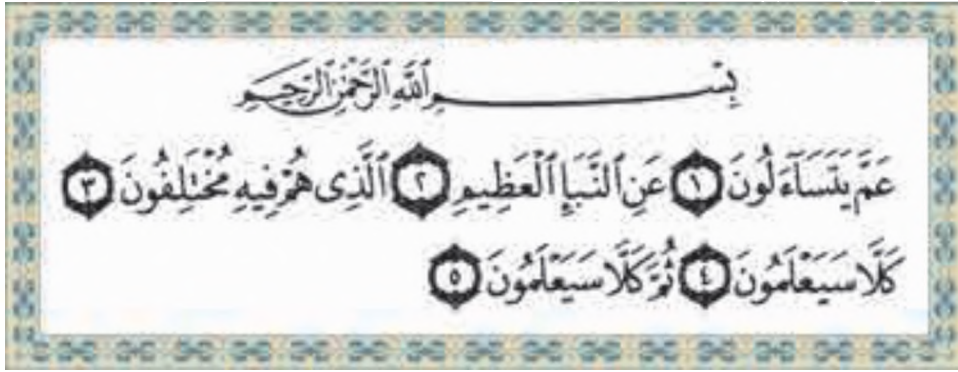 بِسْمِ ٱللَّهِ ٱلرَّحْمَٰنِ ٱلرَّحِيمِ
عَمَّ يَتَسَآءَلُونَ ١ عَنِ ٱلنَّبَإِ ٱلْعَظِيمِ ٢ ٱلَّذِى هُمْ فِيهِ مُخْتَلِفُونَ ٣
كَلَّا سَيَعْلَمُونَ ٤ ثُمَّ كَلَّا سَيَعْلَمُونَ ٥